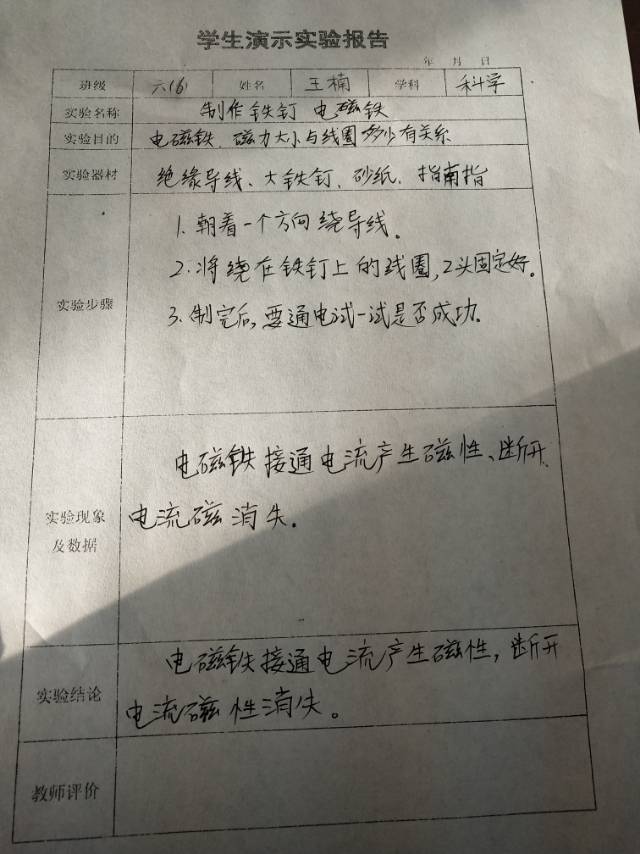 学生演示实验报告
年 月 日
班级 六(6) 姓名 王楠 学科 科学
实验名称 制作铁钉电磁铁
实验目的 电磁铁、磁力大小与线圈多少有关系
实验器材 绝缘导线、大铁钉、砂纸、指南指
1.朝着一个方向绕导线。
2.将绕在铁钉上的线圈,2头固定好。
实验步骤
3.制完后,要通电试一试是否成功.
电磁铁接通电流产生磁性、断开
实验现象
及数据
电流磁消失.
电磁铁接通电流产生磁性,断开
实验结论
电流磁性消失。
教师评价